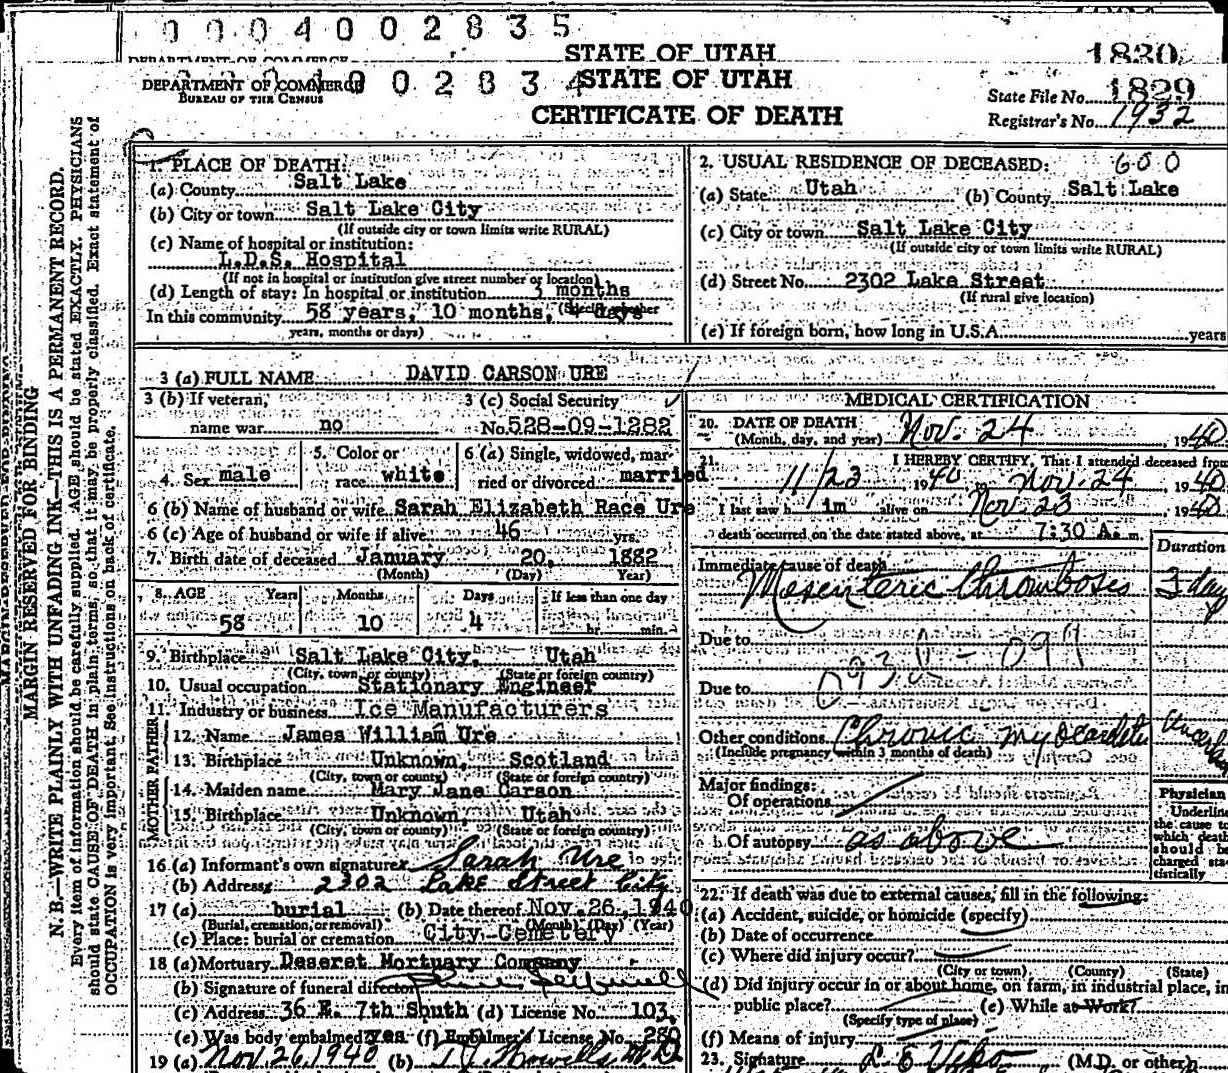 0004002835
STATE OF UTAH
1830
DEPARTMENT OF COMMERCE
BUREAU OF THE CENSUS
STATE OF UTAH
CERTIFICATE OF DEATH
State File No. 1829
Registrar's No. 1932
MARGIN RESERVED FOR BINDING
N. B.—WRITE PLAINLY WITH UNFADING INK—THIS IS A PERMANENT RECORD.
Every item of information should be carefully supplied. AGE should be stated EXACTLY. PHYSICIANS
should state CAUSE OF DEATH in plain terms, so that it may be properly classified. Exact statement of
OCCUPATION is very important. See instructions on back of certificate.
1. PLACE OF DEATH:
(a) County Salt Lake
(b) City or town Salt Lake City
(If outside city or town limits write RURAL)
(c) Name of hospital or institution:
L.D.S. Hospital
(If not in hospital or institution give street number or location)
(d) Length of stay: In hospital or institution 3 months
In this community 58 years, 10 months, 4 days
years, months or days)
2. USUAL RESIDENCE OF DECEASED: 600
(a) State Utah (b) County Salt Lake
(c) City or town Salt Lake City
(If outside city or town limits write RURAL)
(d) Street No. 2302 Lake Street
(If rural give location)
(e) If foreign born, how long in U.S.A. years
3 (a) FULL NAME DAVID CARSON URE
3 (b) If veteran, name war no
3 (c) Social Security No. 528-09-1282
4. Sex male
5. Color or race white
6 (a) Single, widowed, married or divorced married
6 (b) Name of husband or wife Sarah Elizabeth Race Ure
6 (c) Age of husband or wife if alive 46 yrs.
7. Birth date of deceased January 20, 1882
(Month) (Day) Year)
8. AGE Years Months Days If less than one day
58 10 4 hr. min.
9. Birthplace Salt Lake City, Utah
(City, town, or county) (State or foreign country)
10. Usual occupation Stationary Engineer
11. Industry or business Ice Manufacturers
FATHER
12. Name James William Ure
13. Birthplace Unknown, Scotland
(City, town or county) (State or foreign country)
MOTHER
14. Maiden name Mary Jane Carson
15. Birthplace Unknown, Utah
(City, town or county) (State or foreign country)
16 (a) Informant's own signature Sarah Ure
(b) Address 2302 Lake Street City
17 (a) burial (b) Date thereof Nov. 26, 1940
(Burial, cremation, or removal) (Month) (Day) (Year)
(c) Place: burial or cremation City Cemetery
18 (a) Mortuary Deseret Mortuary Company
(b) Signature of funeral director
(c) Address 36 E. 7th South (d) License No. 103
(e) Was body embalmed yes (f) Embalmer's License No. 280
19 (a) Nov 26, 1940 (b)
MEDICAL CERTIFICATION
20. DATE OF DEATH
(Month, day, and year) Nov. 24, 1940
21. I HEREBY CERTIFY, That I attended deceased from
11/23, 1940 to Nov. 24, 1940
I last saw h im alive on Nov. 23, 1940
death occurred on the date stated above, at 7:30 A. m.
Duration
Immediate cause of death
Mesenteric thrombosis 3 days
Due to
Due to
Other conditions Chronic myocarditis
(Include pregnancy within 3 months of death)
Major findings:
Of operations
Of autopsy as above
Physician
Underline
the cause to
which death
should be
charged sta-
tistically
22. If death was due to external causes, fill in the following:
(a) Accident, suicide, or homicide (specify)
(b) Date of occurrence
(c) Where did injury occur?
(City or town) (County) (State)
(d) Did injury occur in or about home, on farm, in industrial place, in
public place? (e) While at Work?
(Specify type of place)
(f) Means of injury
23. Signature (M.D. or other)